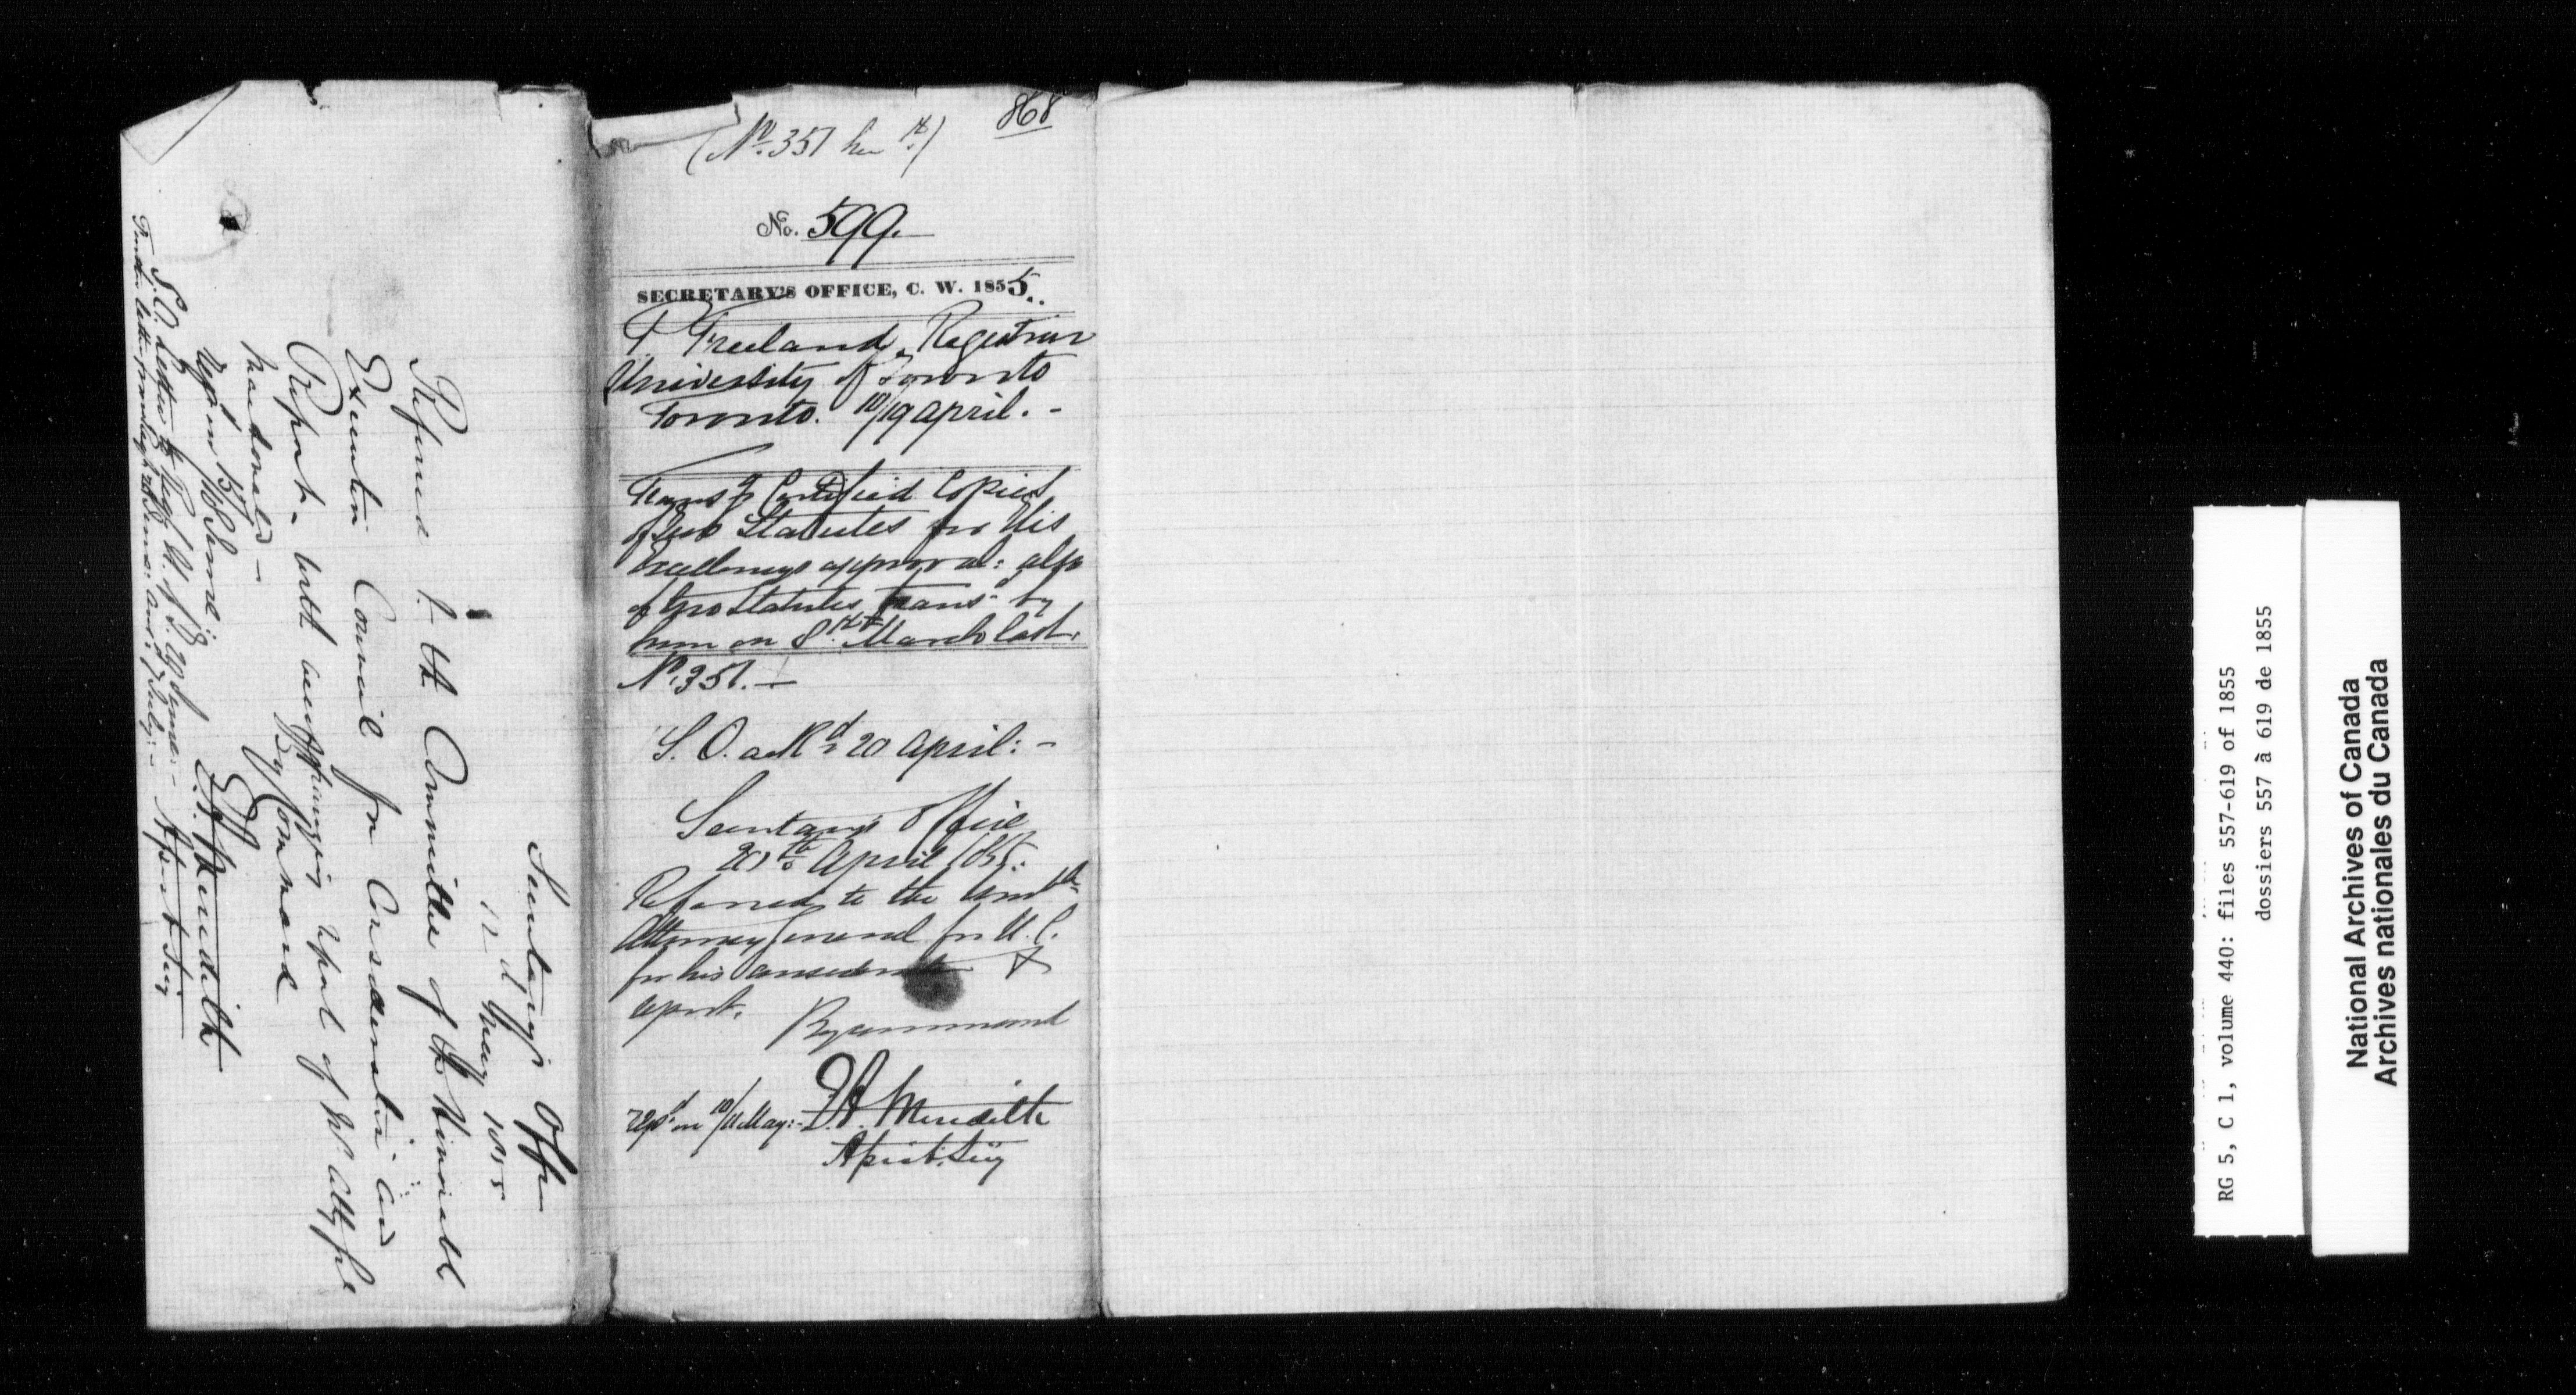 868
(No. 351 her th)
No. 599.
SECRETARY'S OFFICE, C. W. 1855.
P Freeland, Registrar
University of Toronto
Toronto. 10/19 April. -
Transg Certified Copies
of two Statutes for His
Excellencys approval: also
of two Statutes transd by
him on 8th March last.
No. 351. —
S. O. ackd 20 April: -
Secretary's Office
20th April 1855:
Referred to the Honble
Attorney General for U. C.
for his consideration &
report.
By command
E. A. Meredith
Assist. Secy
repd on 10/11 May: -
Secretary's Office
12 May 1855
Referred to the Committee of the Honorable
Executive Council for Consideration and
Report. with accompanying report of Mr. Atty Genl
hereon
By Command
E. A. Meredith
Assist Secy
Repd on 15/16 June:
S. O. Letter to Regr U. of T. 29 June: -
RG 5, C 1, volume 440: files 557-619 of 1855
dossiers 557 à 619 de 1855
National Archives of Canada
Archives nationales du Canada